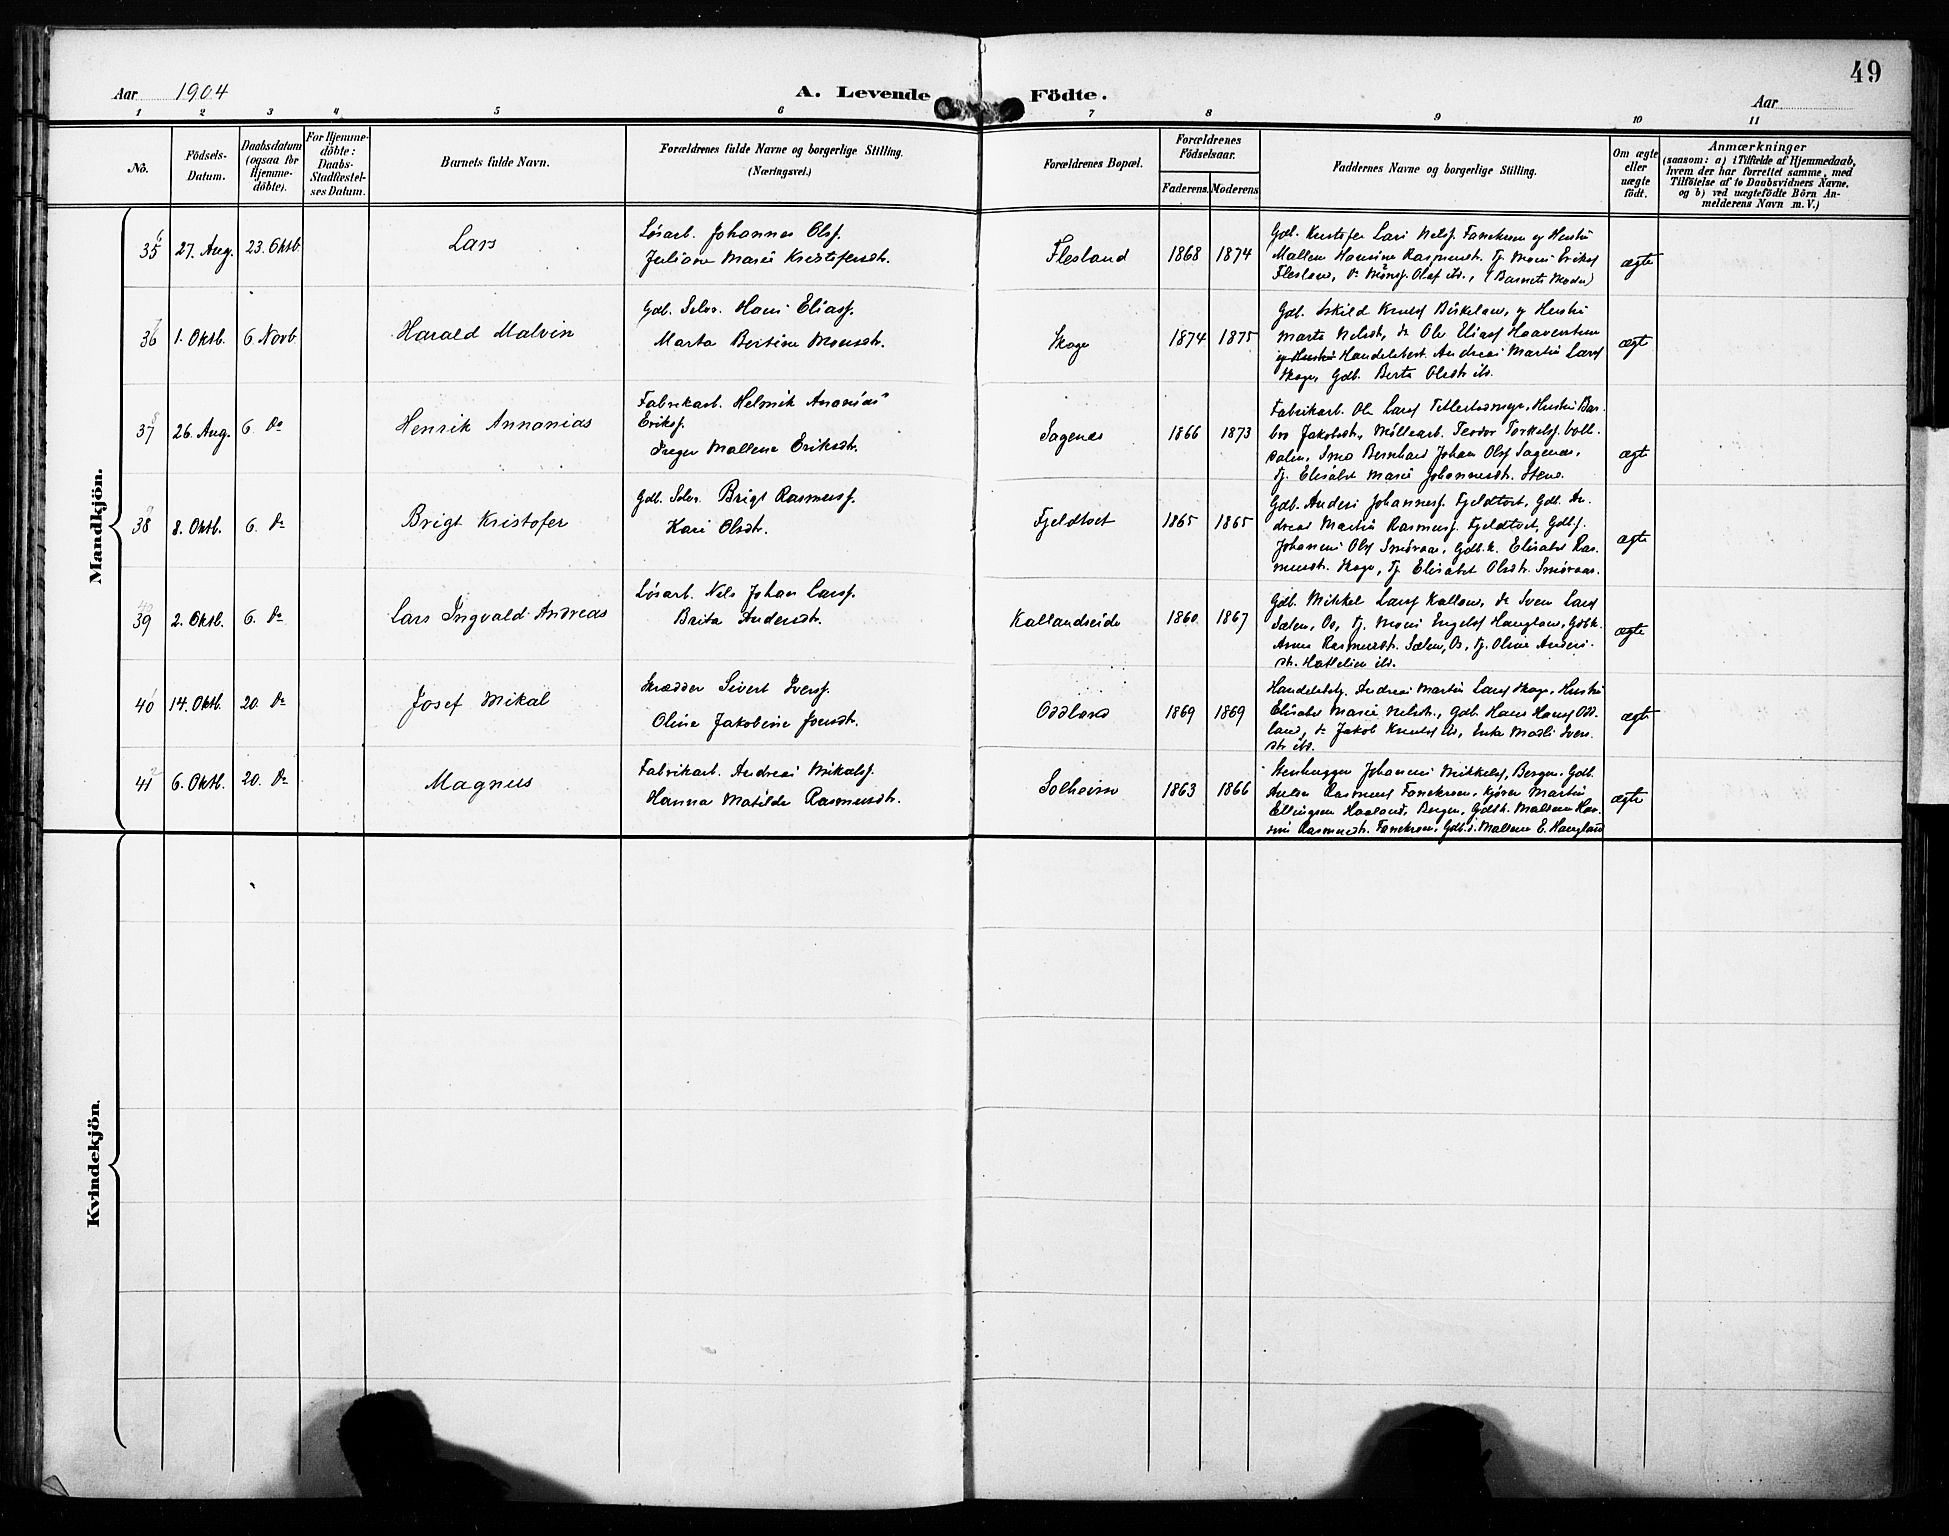 49
Aar 1904
A. Levende Födte.
Aar
1 2 3 4 5 6 7 8 9 10 11
No.
Födsels-Datum.
Daabsdatum (ogsaa for Hjemme-döbte).
For Hjemme-döbte: Daabs-Stadfæstel-ses Datum.
Barnets fulde Navn.
Forældrenes fulde Navne og borgerlige Stilling. (Næringsvei.)
Forældrenes Bopæl.
Forældrenes Födselsaar.
Faderens. Moderens
Faddernes Navne og borgerlige Stilling.
Om ægte eller uægte födt.
Anmærkninger
(saasom: a) i Tilfælde af Hjemmedaab,
hvem der har forrettet samme, med
Tilföielse af to Daabsvidners Navne,
og b) ved uægtefödte Börn An-
melderens Navn m. V.)
Mandkjön.
35 27. Aug. 23. Oktb Lars
Løsarb. Johannes Olsf.
Juliane Marie Kristofersdt.
Flesland 1868 1874
Gdb. Kristofer Lars Nelsf. Fanekroen og Hustru
Malene Hansine Rasmusdt. Tj. Mons Eriksf
Flesland, Do Mons Olsf ibd., (Barnets Moder)
ægte
36 1. Oktb. 6 Novb. Harald Malvin
Gdb. Selv. Hans Eliasf.
Marta Bertine Monsdt.
Skage 1874 1875
Gdb. Eskild Knutsf Birkeland, og Hustru
Marta Nelsdt, do Ole Eliasf Haavenstrøm
og Hustru Handelsbest. Andreas Martin Larsf
Skage, Gdb. Berta Olsdt ibd.
ægte
37 26. Aug. 6. Do Henrik Annanias
Fabrikarb. Helmik Ananias
Eriksf.
Inger Malene Eriksdt.
Sagenes 1866 1873
Fabrikarb. Ole Larsf Tellestadmyr, Hustru Bar-
bro Jakobsdt., Møllearb. Teodor Torkelsf.
dalen, Smed Bernhard Johan Olsf Sagenes,
Tj. Elisabet Marie Johannesdt. Stend.
ægte
38 8. Oktb. 6. Do Brigt Kristofer
Gdb. Selv. Brigt Rasmusf.
Kari Olsdt.
Fjeldtvet 1865 1865
Gdb. Anders Johannesf. Fjeldtvet, Gdb. An-
dreas Martin Rasmusf. Fjeldtvet, Gdbf.
Johannes Olsf Smøraas, Gdb.k. Elisabet Ras-
musdt. Skage, Tj. Elisabet Olsdt. Smøraas.
ægte
39 2. Oktb. 6. Do Lars Ingvald Andreas
Løsarb. Nels Johan Larsf.
Brita Andersdt.
Kallandseide 1860 1867
Gdb. Mikkel Larsf Kalland, do Sven Larsf
Sælen, Os, Tj. Mons Engelsf Haugland, Gdbk.
Anna Rasmusdt. Sælen, Os, Tj. Oline Anders-
dt. Hatlelien ibd.
ægte
40 14. Oktb. 20. Do Josef Mikal
Skrædder Sivert Iversf.
Oline Jakobine Jonsdt.
Oddland 1869 1869
Handelsbetj. Andreas Martin Larsf Skage, Hustru
Elisabet Marie Nelsdt., Gdb. Hans Hansf Odd-
land, do Jakob Knutsf ibd, Enke Madli Ivers-
dt. ibd.
ægte
41 6. Oktb. 20. Do Magnus
Fabrikarb. Andreas Mikalsf.
Hanna Matilde Rasmusdt.
Solheim 1863 1866
Stenhugger Johannes Mikkelsf, Bergen, Gdb.
Anders Rasmusf Fanekroen, Kjører Martin
Ellingsen Haaland, Bergen, Gdbk. Malene Han-
sine Rasmusdt. Fanekroen, Gdb.d. Malene E. Haugland
ægte
Kvindekjön.